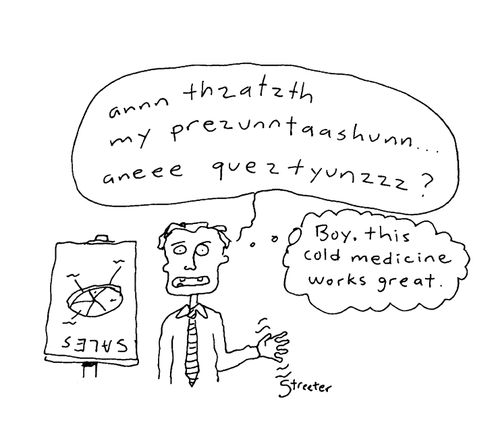 annn thzatzth
my prezunntaashunn...
aneee queztyunzzz?
Boy, this
cold medicine
works great.
SALES
Streeter